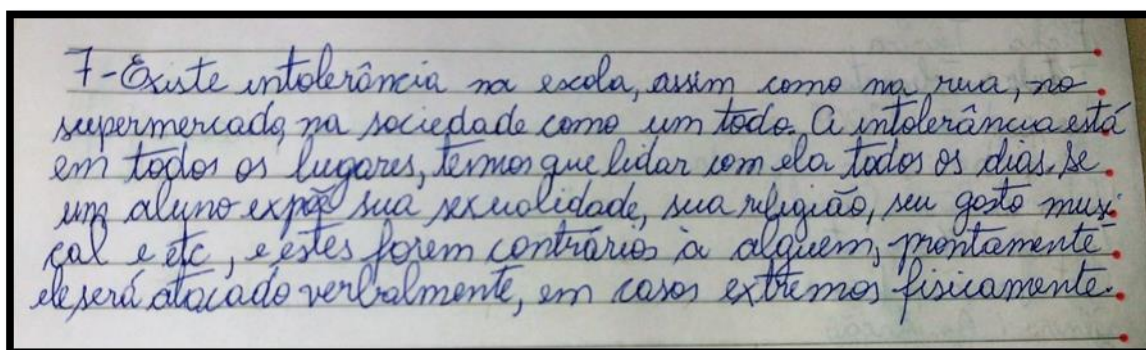 7-Existe intolerância na escola, assim como na rua, no
supermercado, na sociedade como um todo. A intolerância está
em todos os lugares, temos que lidar com ela todos os dias, se
um aluno expõe sua sexualidade, sua religião, seu gosto musi-
cal e etc, e estes forem contrários à alguém, prontamente
ele será atacado verbalmente, em casos extremos fisicamente.